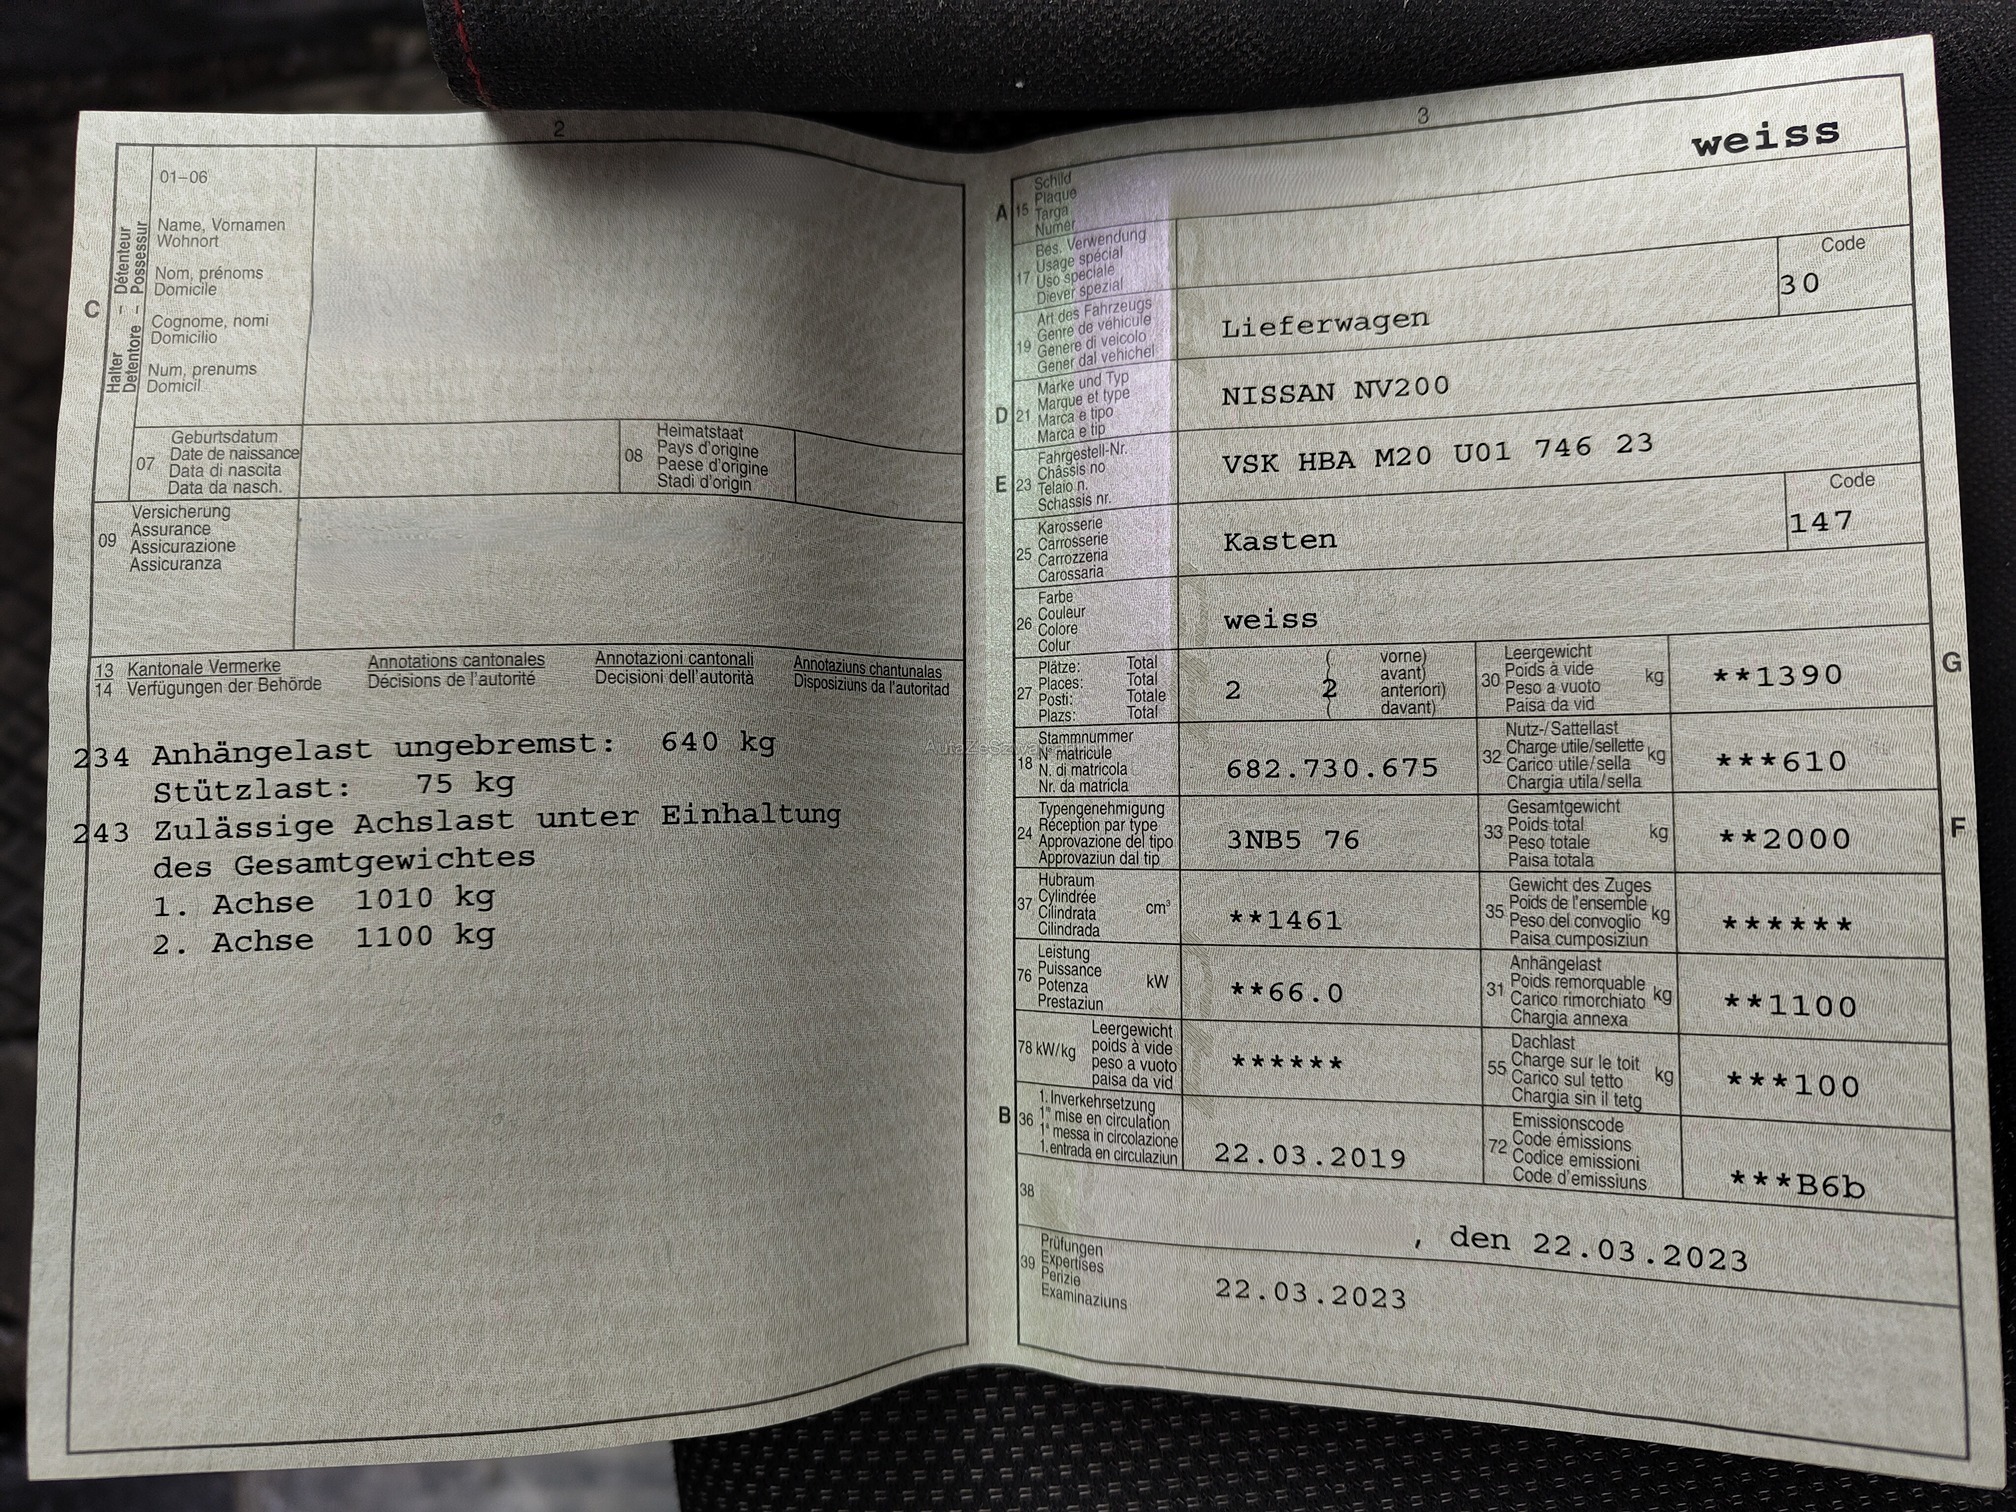 2
01–06
Name, Vornamen
Wohnort
Nom, prénoms
Domicile
Cognome, nomi
Domicilio
Num, prenums
Domicil
C
Halter – Détenteur
Detentore – Possessur
07
Geburtsdatum
Date de naissance
Data di nascita
Data da nasch.
08
Heimatstaat
Pays d'origine
Paese d'origine
Stadi d'origin
09
Versicherung
Assurance
Assicurazione
Assicuranza
13 Kantonale Vermerke Annotations cantonales Annotazioni cantonali Annotaziuns chantunalas
14 Verfügungen der Behörde Décisions de l'autorité Decisioni dell'autorità Disposiziuns da l'autoritad
234 Anhängelast ungebremst: 640 kg
Stützlast: 75 kg
243 Zulässige Achslast unter Einhaltung
des Gesamtgewichtes
1. Achse 1010 kg
2. Achse 1100 kg
3
weiss
A 15
Schild
Plaque
Targa
Numer
17
Bes. Verwendung
Usage spécial
Uso speciale
Diever spezial
19
Art des Fahrzeugs
Genre de véhicule
Genere di veicolo
Gener dal vehichel
Lieferwagen
Code
30
D 21
Marke und Typ
Marque et type
Marca e tipo
Marca e tip
NISSAN NV200
E 23
Fahrgestell-Nr.
Châssis no
Telaio n.
Schassis nr.
VSK HBA M20 U01 746 23
25
Karosserie
Carrosserie
Carrozzeria
Carossaria
Kasten
Code
147
26
Farbe
Couleur
Colore
Colur
weiss
27
Plätze: Total
Places: Total
Posti: Totale
Plazs: Total
2 2
vorne)
avant)
anteriori)
davant)
30
Leergewicht
Poids à vide
Peso a vuoto
Paisa da vid
kg
**1390
G
18
Stammnummer
N° matricule
N. di matricola
Nr. da matricla
682.730.675
32
Nutz-/Sattellast
Charge utile/sellette
Carico utile/sella
Chargia utila/sella
kg
***610
24
Typengenehmigung
Réception par type
Approvazione del tipo
Approvaziun dal tip
3NB5 76
33
Gesamtgewicht
Poids total
Peso totale
Paisa totala
kg
**2000
F
37
Hubraum
Cylindrée
Cilindrata
Cilindrada
cm³
**1461
35
Gewicht des Zuges
Poids de l'ensemble
Peso del convoglio
Paisa cumposiziun
kg
******
76
Leistung
Puissance
Potenza
Prestaziun
kW
**66.0
31
Anhängelast
Poids remorquable
Carico rimorchiato
Chargia annexa
kg
**1100
78 kW/kg
Leergewicht
poids à vide
peso a vuoto
paisa da vid
******
55
Dachlast
Charge sur le toit
Carico sul tetto
Chargia sin il tetg
kg
***100
B 36
1. Inverkehrsetzung
1re mise en circulation
1a messa in circolazione
1. entrada en circulaziun
22.03.2019
72
Emissionscode
Code émissions
Codice emissioni
Code d'emissiuns
***B6b
38
, den 22.03.2023
39
Prüfungen
Expertises
Perizie
Examinaziuns
22.03.2023